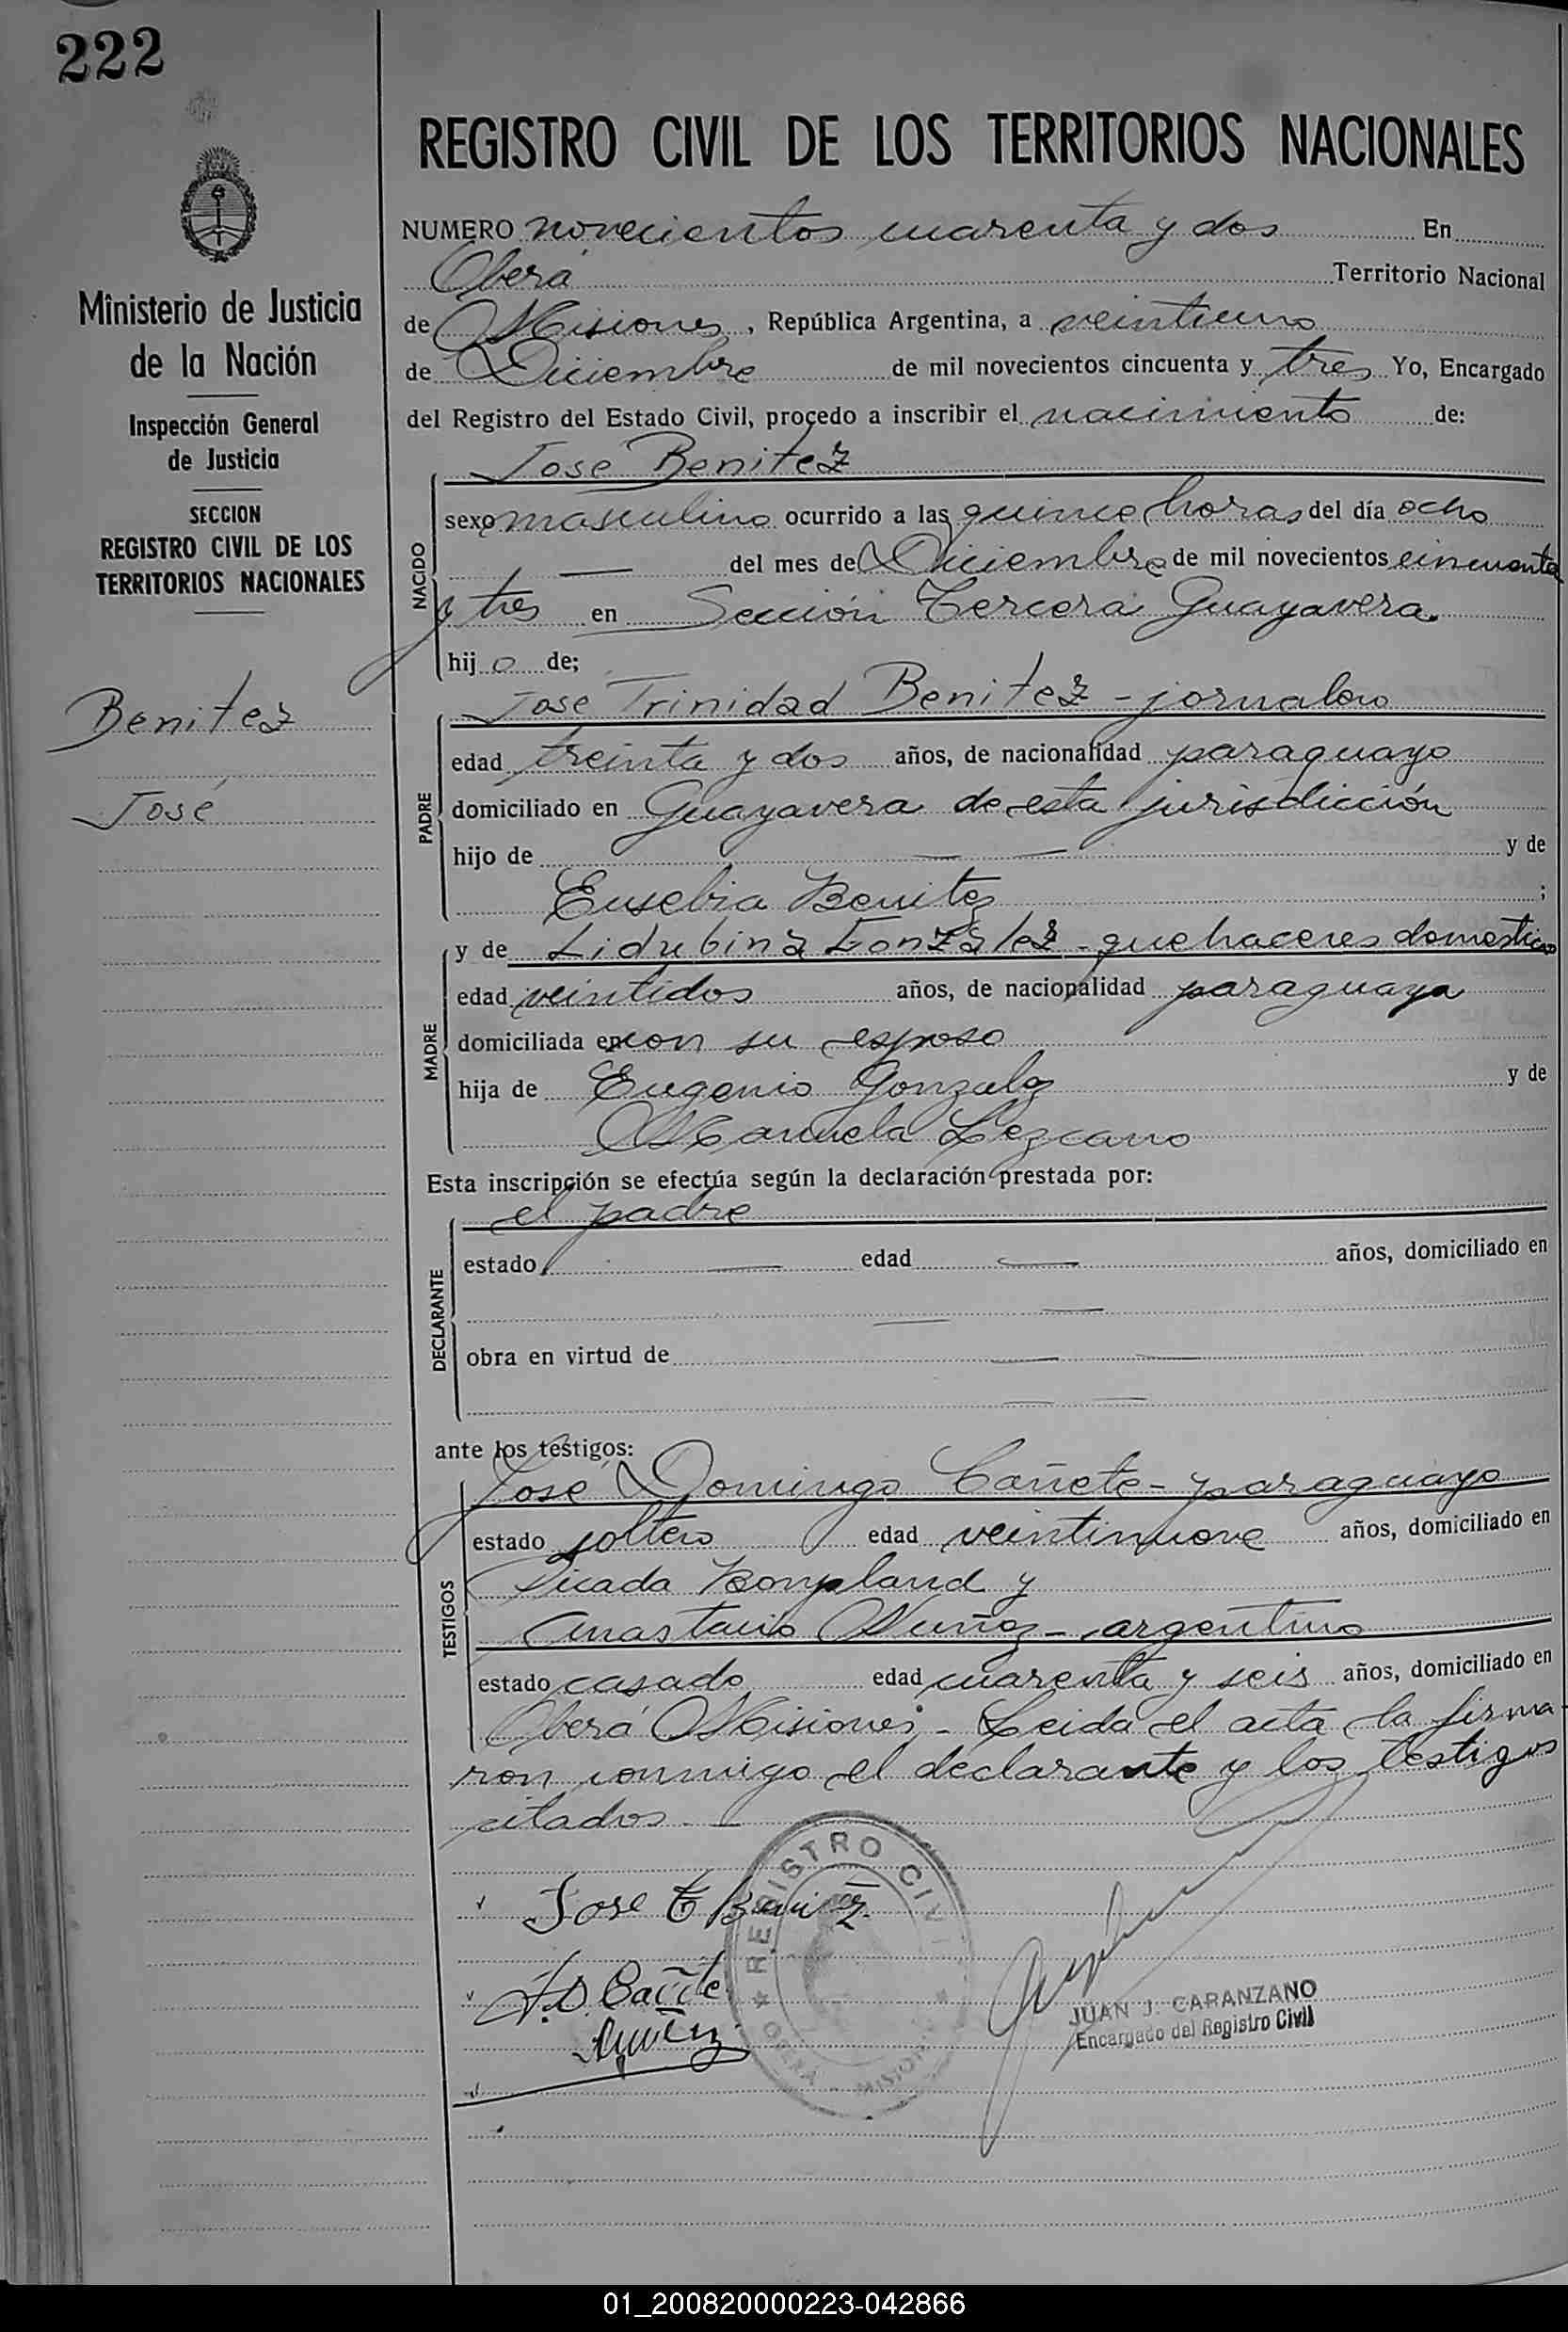 222
REGISTRO CIVIL DE LOS TERRITORIOS NACIONALES
Ministerio de Justicia
de la Nación
Inspección General
de Justicia
SECCION
REGISTRO CIVIL DE LOS
TERRITORIOS NACIONALES
Benitez
José
NUMERO novecientos cuarenta y dos En
Oberá Territorio Nacional
de Misiones, República Argentina, a veintiuno
de Diciembre de mil novecientos cincuenta y tres Yo, Encargado
del Registro del Estado Civil, procedo a inscribir el nacimiento de:
José Benitez
NACIDO
sexo masculino ocurrido a las quince horas del día ocho
— del mes de Diciembre de mil novecientos cincuenta
y tres en Sección Tercera Guayavera.
hijo de;
PADRE
José Trinidad Benitez - jornalero
edad treinta y dos años, de nacionalidad paraguayo
domiciliado en Guayavera de esta jurisdicción
hijo de — — y de
Eusebia Benitez ;
MADRE
y de Lidubina Gonzalez - quehaceres domesticos
edad veintidos años, de nacionalidad paraguaya
domiciliada en con su esposo
hija de Eugenio Gonzalez y de
Manuela Lezcano
Esta inscripción se efectúa según la declaración prestada por:
el padre
DECLARANTE
estado — edad — años, domiciliado en
— —
obra en virtud de — —
— —
ante los testigos:
TESTIGOS
José Domingo Cañete - paraguayo
estado soltero edad veintinueve años, domiciliado en
Picada Bonpland y
Anastacio Nuñez - argentino
estado casado edad cuarenta y seis años, domiciliado en
Oberá Misiones - Leida el acta la firma
ron conmigo el declarante y los testigos
citados. —
Jose T Benitez
J.D. Cañete
ANuñez
REGISTRO CIVIL
OBERA - MISIONES
JUAN J. CARANZANO
Encargado del Registro Civil
01_200820000223-042866